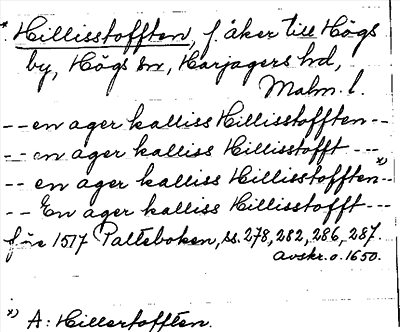 * Hillisstofften, f. åker till Högs
by, Högs sn, Harjagers hd,
Malm. l.
-- en ager kalliss Hillisstofften --
-- en ager kalliss Hillisstofft ---
-- en ager kalliss Hillisstofften x) --
-- En ager kalliss Hillisstofft ---
före 1517 Palteboken, ss. 278, 282, 286, 287.
Avskr. o. 1650.
x) A: Hillertofften.